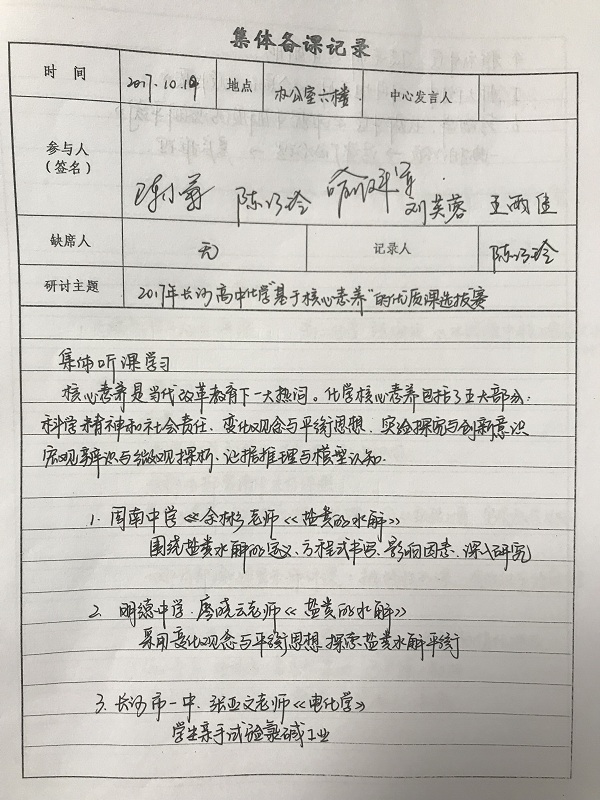 集体备课记录
时 间 2017.10.19 地点 办公室六楼 中心发言人
参与人
(签名)
刘芙蓉 王雨佳
缺席人 无 记录人
研讨主题 2017年长沙高中化学"基于核心素养"的优质课选拔赛
集体听课学习
核心素养是当代改革教育下一大热词。化学核心素养包括了五大部分:
科学精神和社会责任、变化观念与平衡思想、实验探究与创新意识
宏观辨识与微观探析、证据推理与模型认知.
1. 周南中学《余彬老师《盐类的水解》
围绕盐类水解的定义、方程式书写、影响因素、深入研究
2. 明德中学·廖晓云老师《盐类的水解》
采用变化观念与平衡思想 探索盐类水解平衡
3. 长沙市一中、张亚文老师《电化学》
学生亲手试验氯碱工业